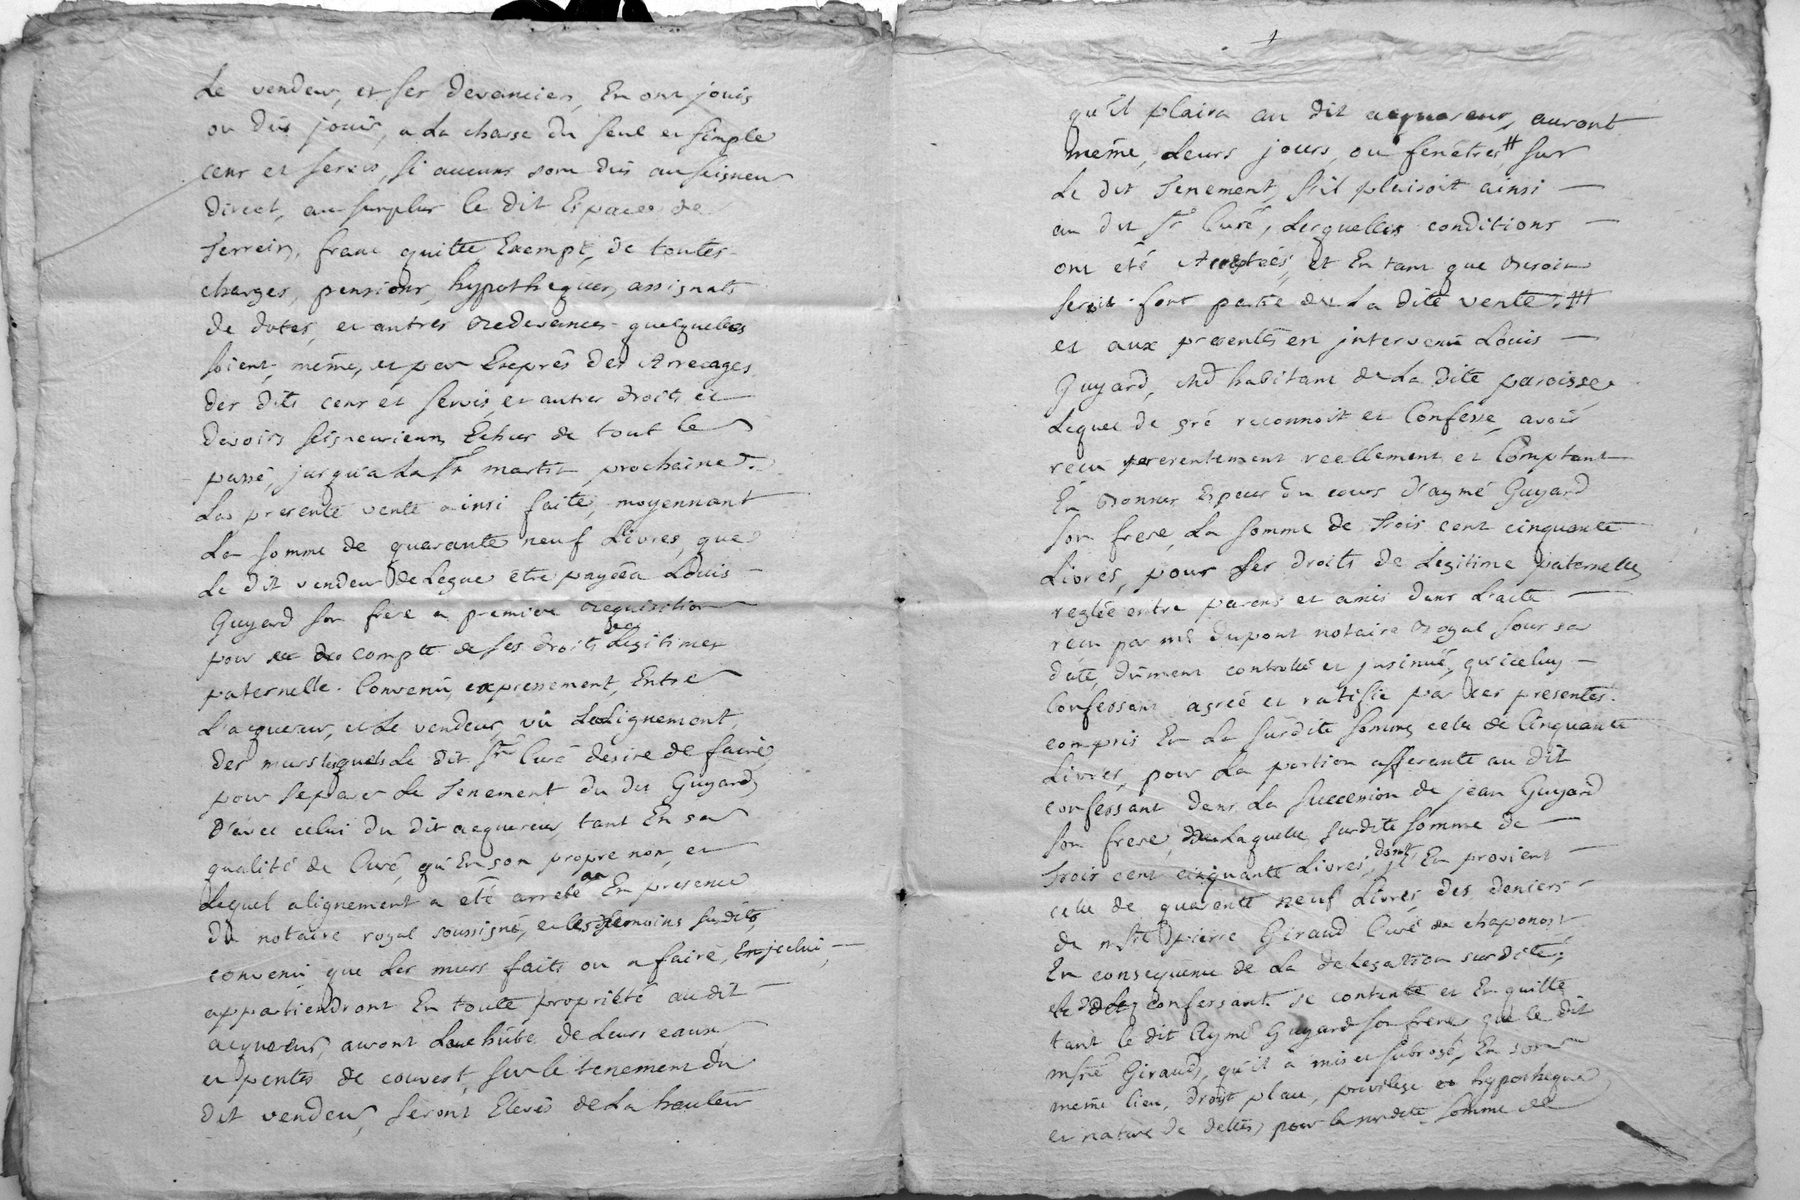 Le vendeur, et ses devanciers, En ont jouis
ou dûs jouir, a La charge du seul et simple
cens et servis, si aucuns sont dûs au seigneur
direct, au surplus le dit Espace de
Terrein, franc quitte Exempt, de toutes
charges, pensions, hypotheques, assignats
de dotes, et autres Redevances quelquelles
soient, même, et par Exprès des Arrerages
des dits cens et servis, et autres droits et
devoirs seigneuriaux Echus de tout le
passé, jusqu'a La St martit prochaine.
La presente vente ainsi faite, moyennant
La somme de quarante neuf Livres, que
Le dit vendeur deLegue être payéea Louis
Guyard son frere a premiere requisition
pour compte de ses droits Legitimes
paternelle. Convenû, expressement, Entre
L'acquereur, et Le vendeur, vû LeaLignement
des murs lesquels Le dit Sr Curé desire de faire
pour separer Le Tenement du dit Guyard,
d'avec celui du dit acquereur, tant En sa
qualité de Curé, qu'En son propre nom, et
Lequel alignement a été arreté En presence
du notaire royal soussigné, et les temoins susdits,
convenû que Les murs faits ou a faire, En jcelui,
appartiendront En toute propriété audit
acquereur, auront Leur chûte de Leurs eaux,
et pentes de couvert, sur le tenement du
dit vendeur, seront Elevés de La hauteur
qu'il plaira au dit acquereur, auront
même, Leurs jours, ou fenêtres # sur
Le dit Tenement, s'il plaisoit ainsi
au dit Sr Curé, Lesquelles conditions
ont été Acceptées, et En tant que Besoin
seroit font partie de La dite vente. #
et aux presentes en jntervenû Louis
Guyard, md habitant de La dite paroisse,
Lequel de gré reconnoit et Confesse, avoir
recu presentement reellement et Comptant
En Bonnes Especes du cours d'aymé Guyard
son frere, La somme de Trois cent cinquante
Livres, pour ses droits de Legitime paternelle,
reglée entre parens et amis dans L'acte
recu par me dupont notaire Royal sous sa
date, dûment controllé et jnsinué, qu'iceluy
Confessant agréé et ratifie par ces presentes.
compris En La susdite somme, celle de Cinquante
Livres, pour La portion afferante au dit
confessant dans La succession de jean Guyard
son frere, de Laquelle susdite somme de
Trois cent cinquante Livres, dont jl En provient
celle de quarante neuf Livres, des deniers
de mre pierre Giraud Curé de chaponost,
En consequence de La deLegation susdite,
Le dit confessant se contente et En quitte
tant le dit Aymé Guyard son frere, que le dit
msre Giraud, qu'il a mis et subrogé, En son
même lieu, droit place, privilege et hypotheque,
et nature de dettes, pour la susdite somme de